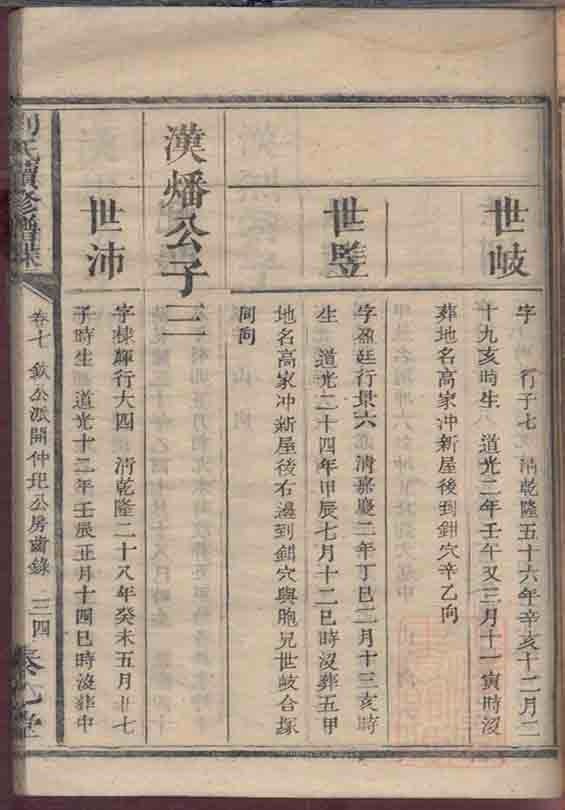 世岐
字　行子七　清乾隆五十六年辛亥十二月二
十九亥時生　道光二年壬午又三月十一寅時沒
葬地名高家冲新屋後到鉗穴辛乙向
世墍
字盈廷行景六　清嘉慶二年丁巳二月十三亥時
生　道光二十四年甲辰七月十二巳時沒葬五甲
地名高家冲新屋後右邊到鉗穴與胞兄世岐合塚
同向
漢燔公子三
世沛
字棟輝行大四　清乾隆二十八年癸未五月廿七
子時生　道光十二年壬辰正月十四巳時沒葬中
劉氏續修譜牒
卷七　欽公派開仲　公房齒錄　三四